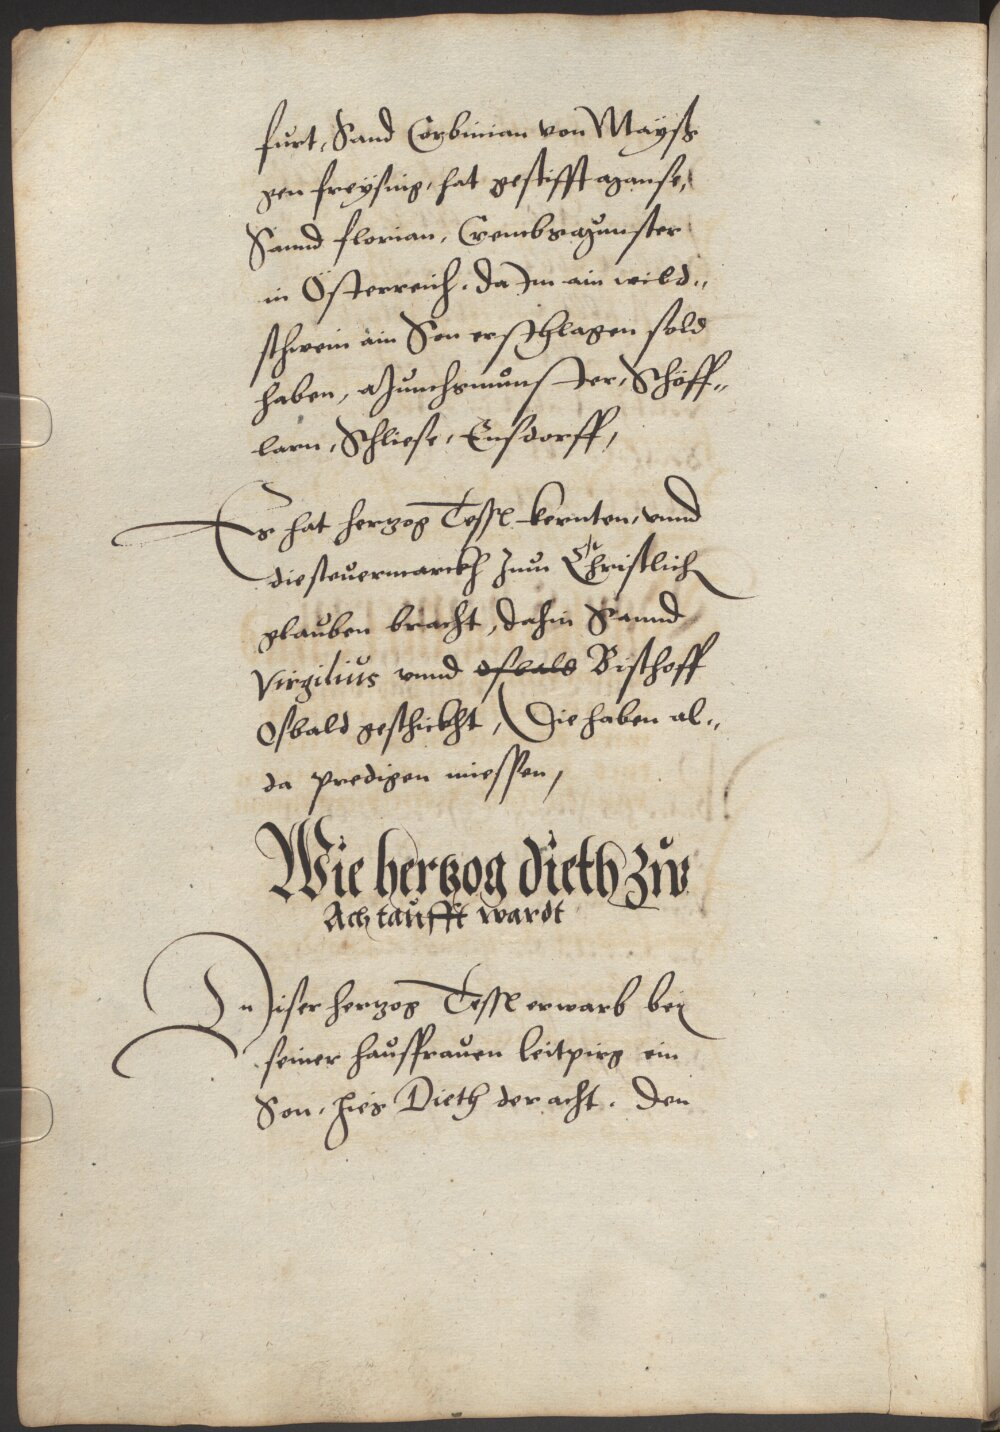 furt, Sand Corbinian von Mayß
gen freysing, hat gestifft Manse,
Sannd florian, Crembsmunster
in Österreich, da Im ain wild„
schwein ain Son erschlagen sold
haben, Munchsmunster, Schöff„
larn, Schliese, Ensdorff,
Es hat hertzog Tessl kernten, vnnd
die steuermarckh zum Christlich
glauben bracht, dahin Sannd
Virgilius vnnd osbald Bischoff
Osbald geschickht, Die haben al„
da predigen miessen,
Wie hertzog dieth zw
Ach taufft wardt
Diser hertzog Tessl erwarb bey
seiner hausfrauen leitpirg ein
Son, hies Dieth der acht. den